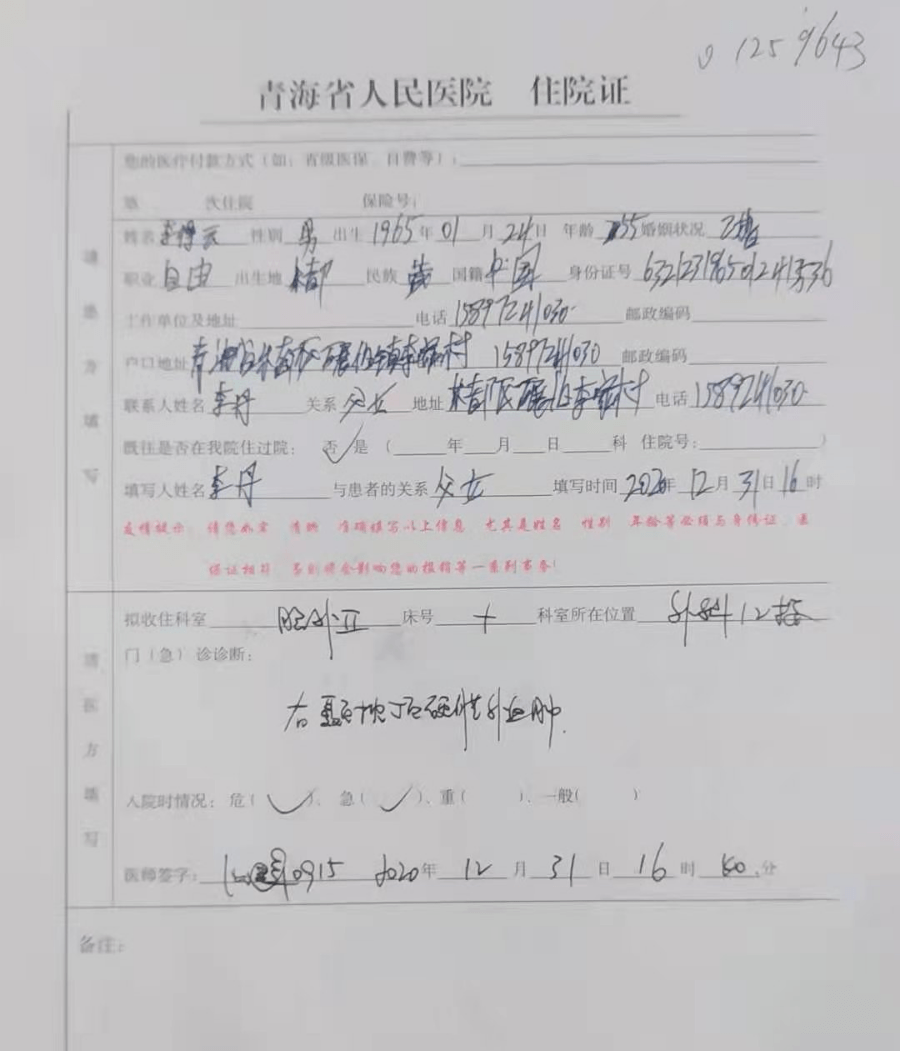 01259643
青海省人民医院 住院证
您的医疗付款方式(如:省级医保、自费等):
第 次住院 保险号:
姓名 李得云 性别 男 出生 1965年 01 月 24日 年龄 55 婚姻状况 已婚
职业 自由 出生地 民族 国籍 中国 身份证号
工作单位及地址 电话 15897241030 邮政编码
户口地址 青海省 李家村 15897241030 邮政编码
联系人姓名 李丹 关系 父女 地址 李家村 电话 15897241030
既往是否在我院住过院: 否✓是(年 月 日 科 住院号: )
填写人姓名 李丹 与患者的关系 父女 填写时间 2020年 12月 31日 16时
友情提示:请您如实、清晰、准确填写以上信息,尤其是姓名、性别、年龄等必须与身份证、医
保证相符,否则将会影响您的报销等一系列事务!
请患方填写
拟收住科室 床号 + 科室所在位置 外科12楼
门(急)诊诊断:
右颞 硬性外血肿.
入院时情况:危(✓)、急(✓)、重( )、一般( )
医师签字: 0915 2020年 12 月 31 日 16 时 分
请医方填写
备注: